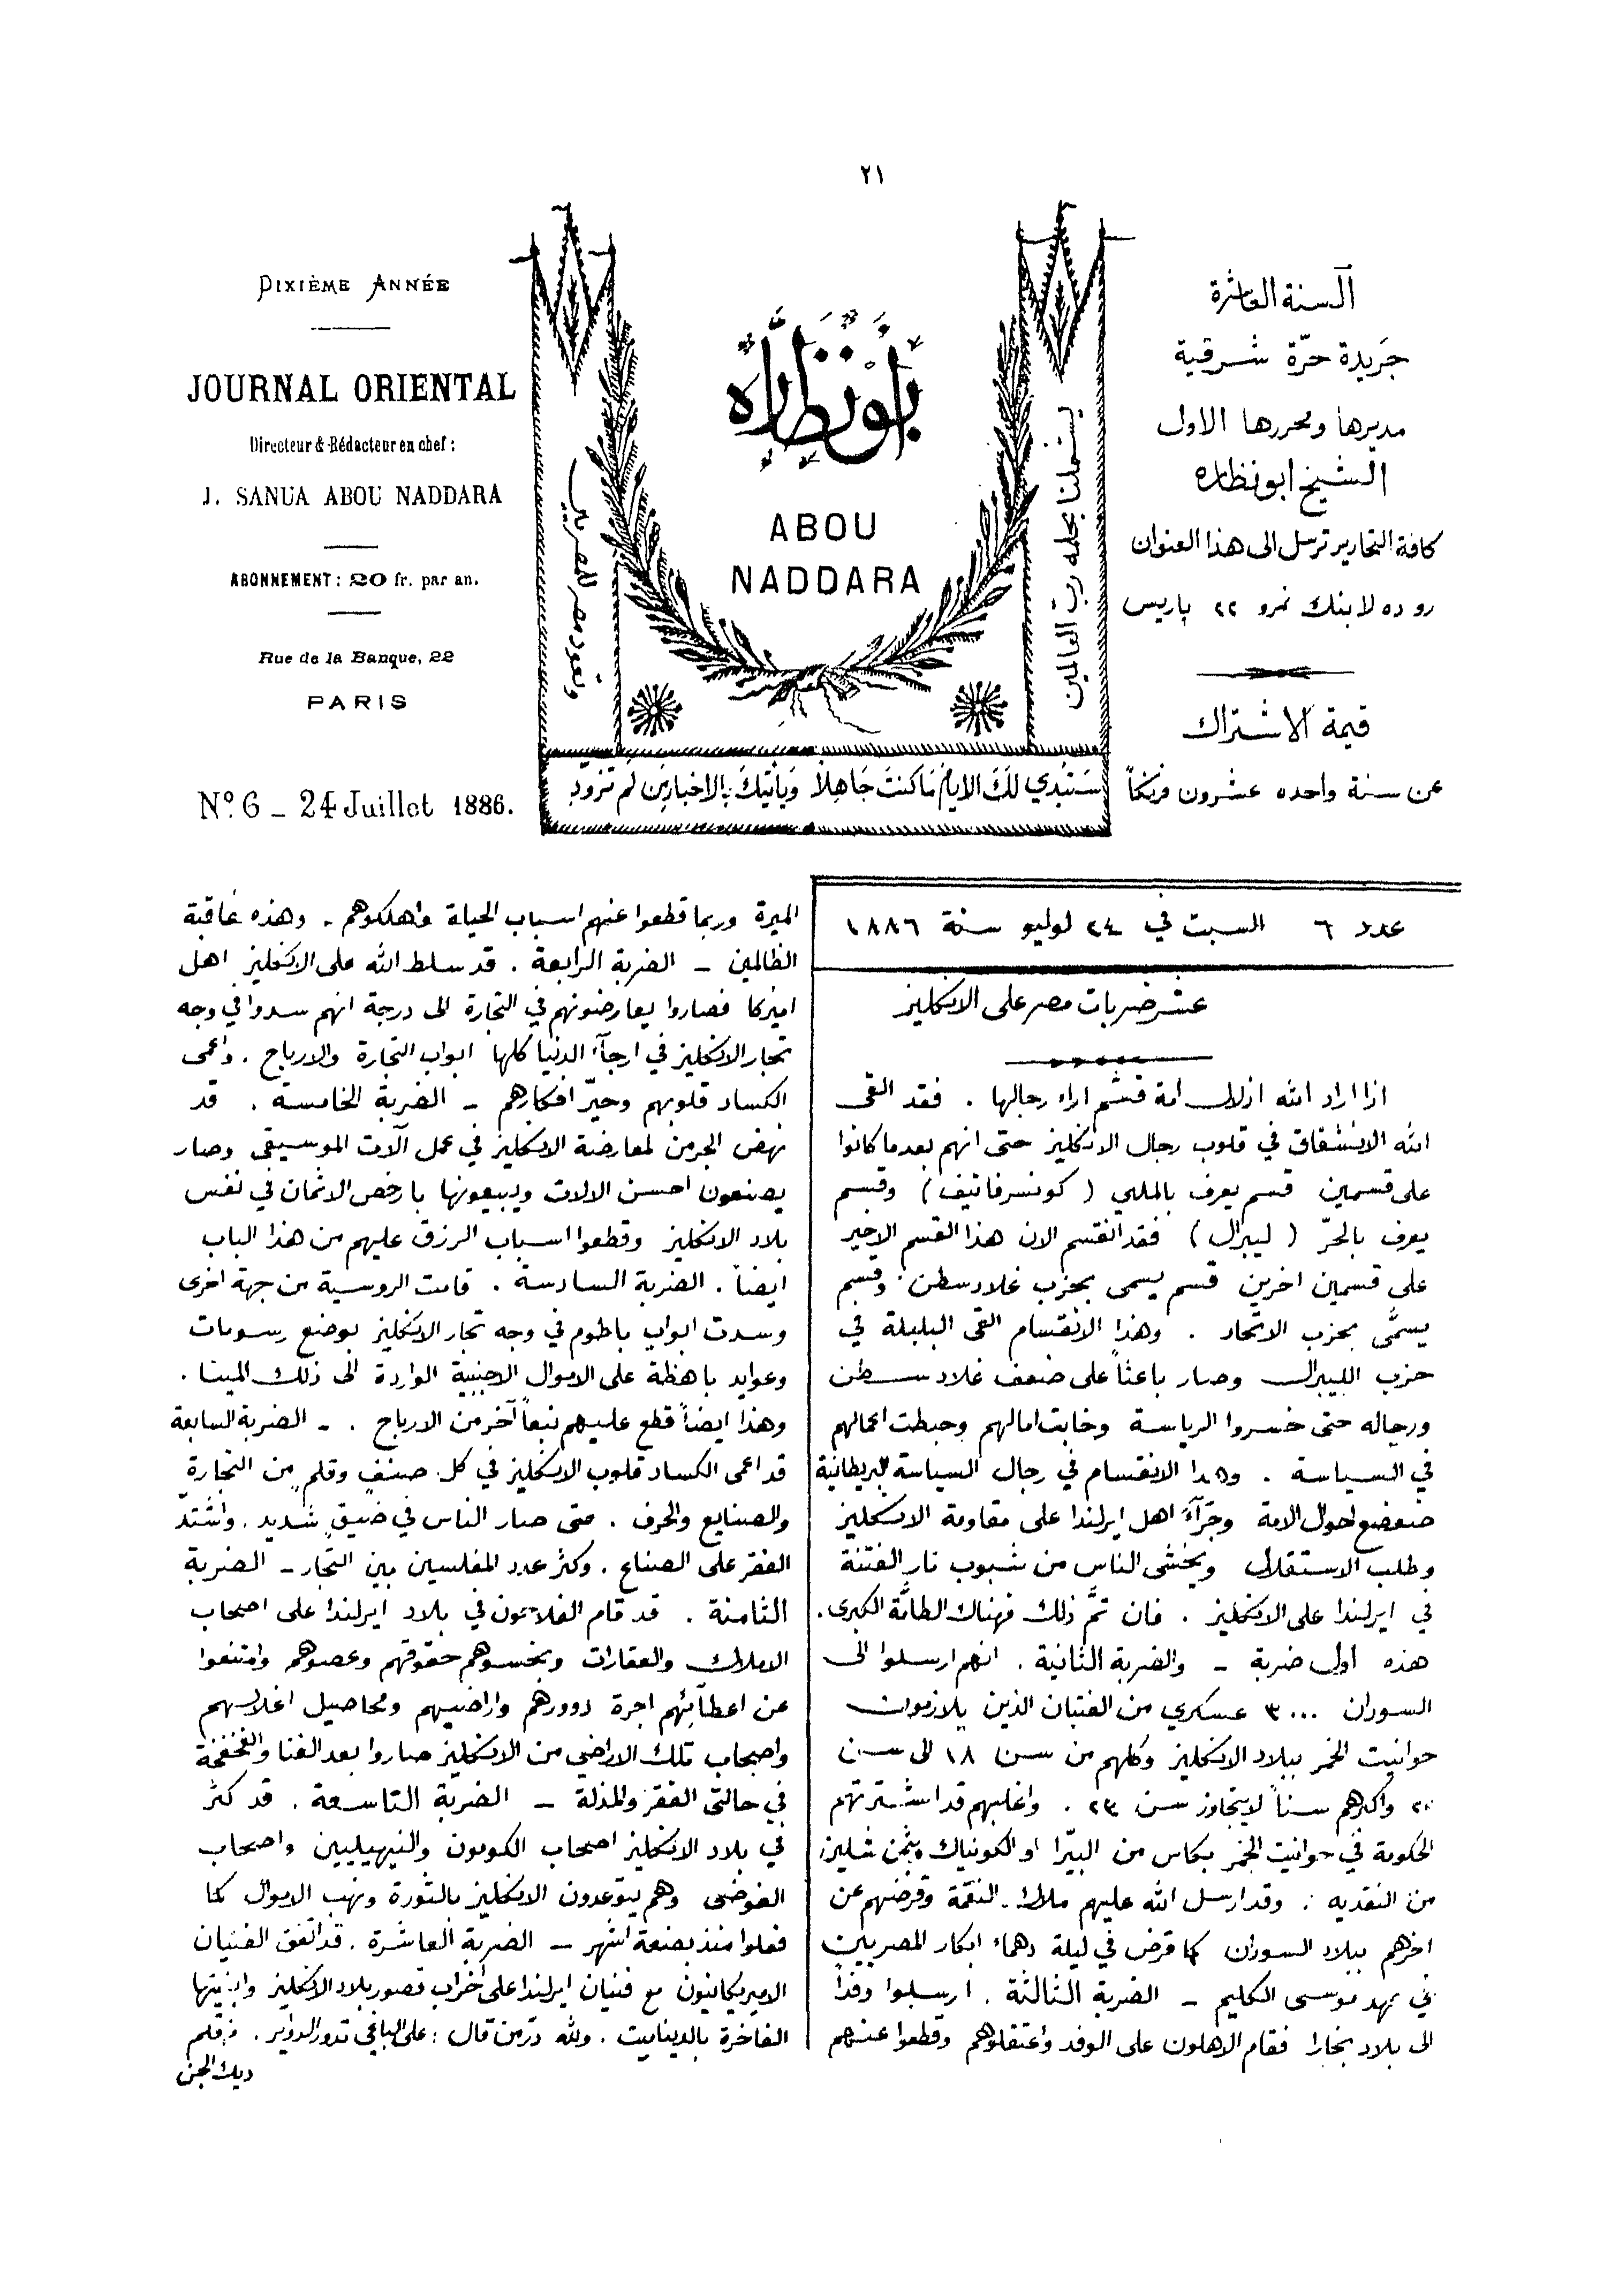 ٢١
DIXIÈME ANNÉE
JOURNAL ORIENTAL
Directeur & Rédacteur en chef:
J. SANUA ABOU NADDARA
ABONNEMENT: 20 fr. par an.
Rue de la Banque, 22
PARIS
Nº. 6 _ 24 Juillet 1886.
أبو نظاره
ABOU
NADDARA
يشملنا بحلمه رب العالمين
وتعود مصر للمصريين
سَتُبْدِي لَكَ الايامُ مَا كنتَ جَاهِلاً وَيَأتيكَ بالاخبارِ مَن لم تزوِّدِ
السنة العاشرة
جَريدة حرّة شرقية
مديرها ومحررها الاول
الشيخ ابو نظاره
كافة التحارير ترسل الى هذا العنوان
رو ده لا بنك نمرو ٢٢ پاريس
قيمة الاشتراك
عن سنة واحده عشرون فرنكاً
عدد ٦ السبت في ٢٤ لوليو سنة ١٨٨٦
عشر ضربات مصر على الانكليز
اذا اراد الله اذلال امة قسّم اراء رجالها . فقد القى
الله الانشقاق في قلوب رجال الانكليز حتى انهم بعد ما كانوا
على قسمين قسم يعرف بالملكي ( كونسرفاتيف ) وقسم
يعرف بالحرّ ( ليبرال ) فقد انقسم الان هذا القسم الاخير
على قسمين اخرين قسم يسمى بحزب غلادسطن . وقسم
يسمَّى بحزب الاتحاد . وهذا الانقسام القى البلبلة في
حزب الليبرال وصار باعثاً على ضعف غلادسطن
ورجاله حتى خسروا الرياسة وخابت امالهم وحبطت اعمالهم
في السياسة . وهذا الانقسام في رجال السياسة البريطانية
ضعضع احوال الامة وجرّآء اهل ايرلندا على مقاومة الانكليز
وطلب الاستقلال ويخشى الناس من شبوب نار الفتنة
في ايرلندا على الانكليز . فان تمَّ ذلك فهناك الطامَّة الكبرى .
هذه اول ضربة _ والضربة الثانية . انهم ارسلوا الى
السودان ٣٠٠٠ عسكري من الفتيان الذين يلازموت
حوانيت الخمر ببلاد الانكليز وكلهم من سن ١٨ الى سن
٢٠ واكبرهم سناً لايتجاوز سن ٢٣ . واغلبهم قد اشترتهم
الحكومة في حوانيت الخمر بكاس من البيّرا او الكونياك وبثمن شلين
من النقديه . وقد ارسل الله عليهم ملاك النقمة وقرضهم عن
اخرهم ببلاد السودان كما قرض في ليلة دهماء ابكار المصريين
في عهد موسى الكليم _ الضربة الثالثة . ارسلوا وفداً
الى بلاد بخارا فقام الاهلون على الوفد واعتقلوهم وقطعوا عنهم
الميرة وربما قطعوا عنهم اسباب الحياة واهلكوهم . وهذه عاقبة
الظالمين _ الضربة الرابعة . قد سلط الله على الانكليز اهل
اميركا فصاروا يعارضونهم في التجارة الى درجة انهم سدوا في وجه
تجار الانكليز في ارجآء الدنيا كلها ابواب التجارة والارباح . واعمى
الكساد قلوبهم وحيّر افكارهم _ الضربة الخامسة . قد
نهض الجرمن لمعارضة الانكليز في عمل آلات الموسيقى وصار
يصنعون احسن الالات ويبيعونها بارخص الاثمان في نفس
بلاد الانكليز وقطعوا اسباب الرزق عليهم من هذا الباب
ايضاً . الضربة السادسة . قامت الروسية من جهة اخرى
وسدت ابواب باطوم في وجه تجار الانكليز بوضع رسومات
وعوايد باهظة على الاموال الاجنبية الواردة الى ذلك المينا .
وهذا ايضاً قطع عليهم نبعاً آخر من الارباح . _ الضربة السابعة
قد اعمى الكساد قلوب الانكليز في كل صنفٍ وقلمٍ من التجارة
والصنايع والحرف . حتى صار الناس في ضيقٍ شديد . واشتدّ
الفقر على الصناع . وكثر عدد المفلسين بين التجار _ الضربة
الثامنة . قد قام الفلاحون في بلاد ايرلندا على اصحاب
الاملاك والعقارات وبخسوهم حقوقهم وعصوهم وامتنعوا
عن اعطآئهم اجرة دوورهم واراضيهم ومحاصيل اغلالهم
واصحاب تلك الاراضي من الانكليز صاروا بعد الغنا والفخفخة
في حالتى الفقر والمذلة _ الضربة التاسعة . قد كثر
في بلاد الانكليز اصحاب الكومون والنيهيليين واصحاب
الفوضى وهم يتوعدون الانكليز بالثورة ونهب الاموال كما
فعلوا منذ بضعة اشهر _ الضربة العاشرة . قد اتفق الفنيان
الاميريكانيون مع فنيان ايرلندا على اخراب قصور بلاد الانكليز وابنيتها
الفاخرة بالديناميت . ولله درّ من قال : على الباغي تدور الدواير . بقلم
ديك الجن